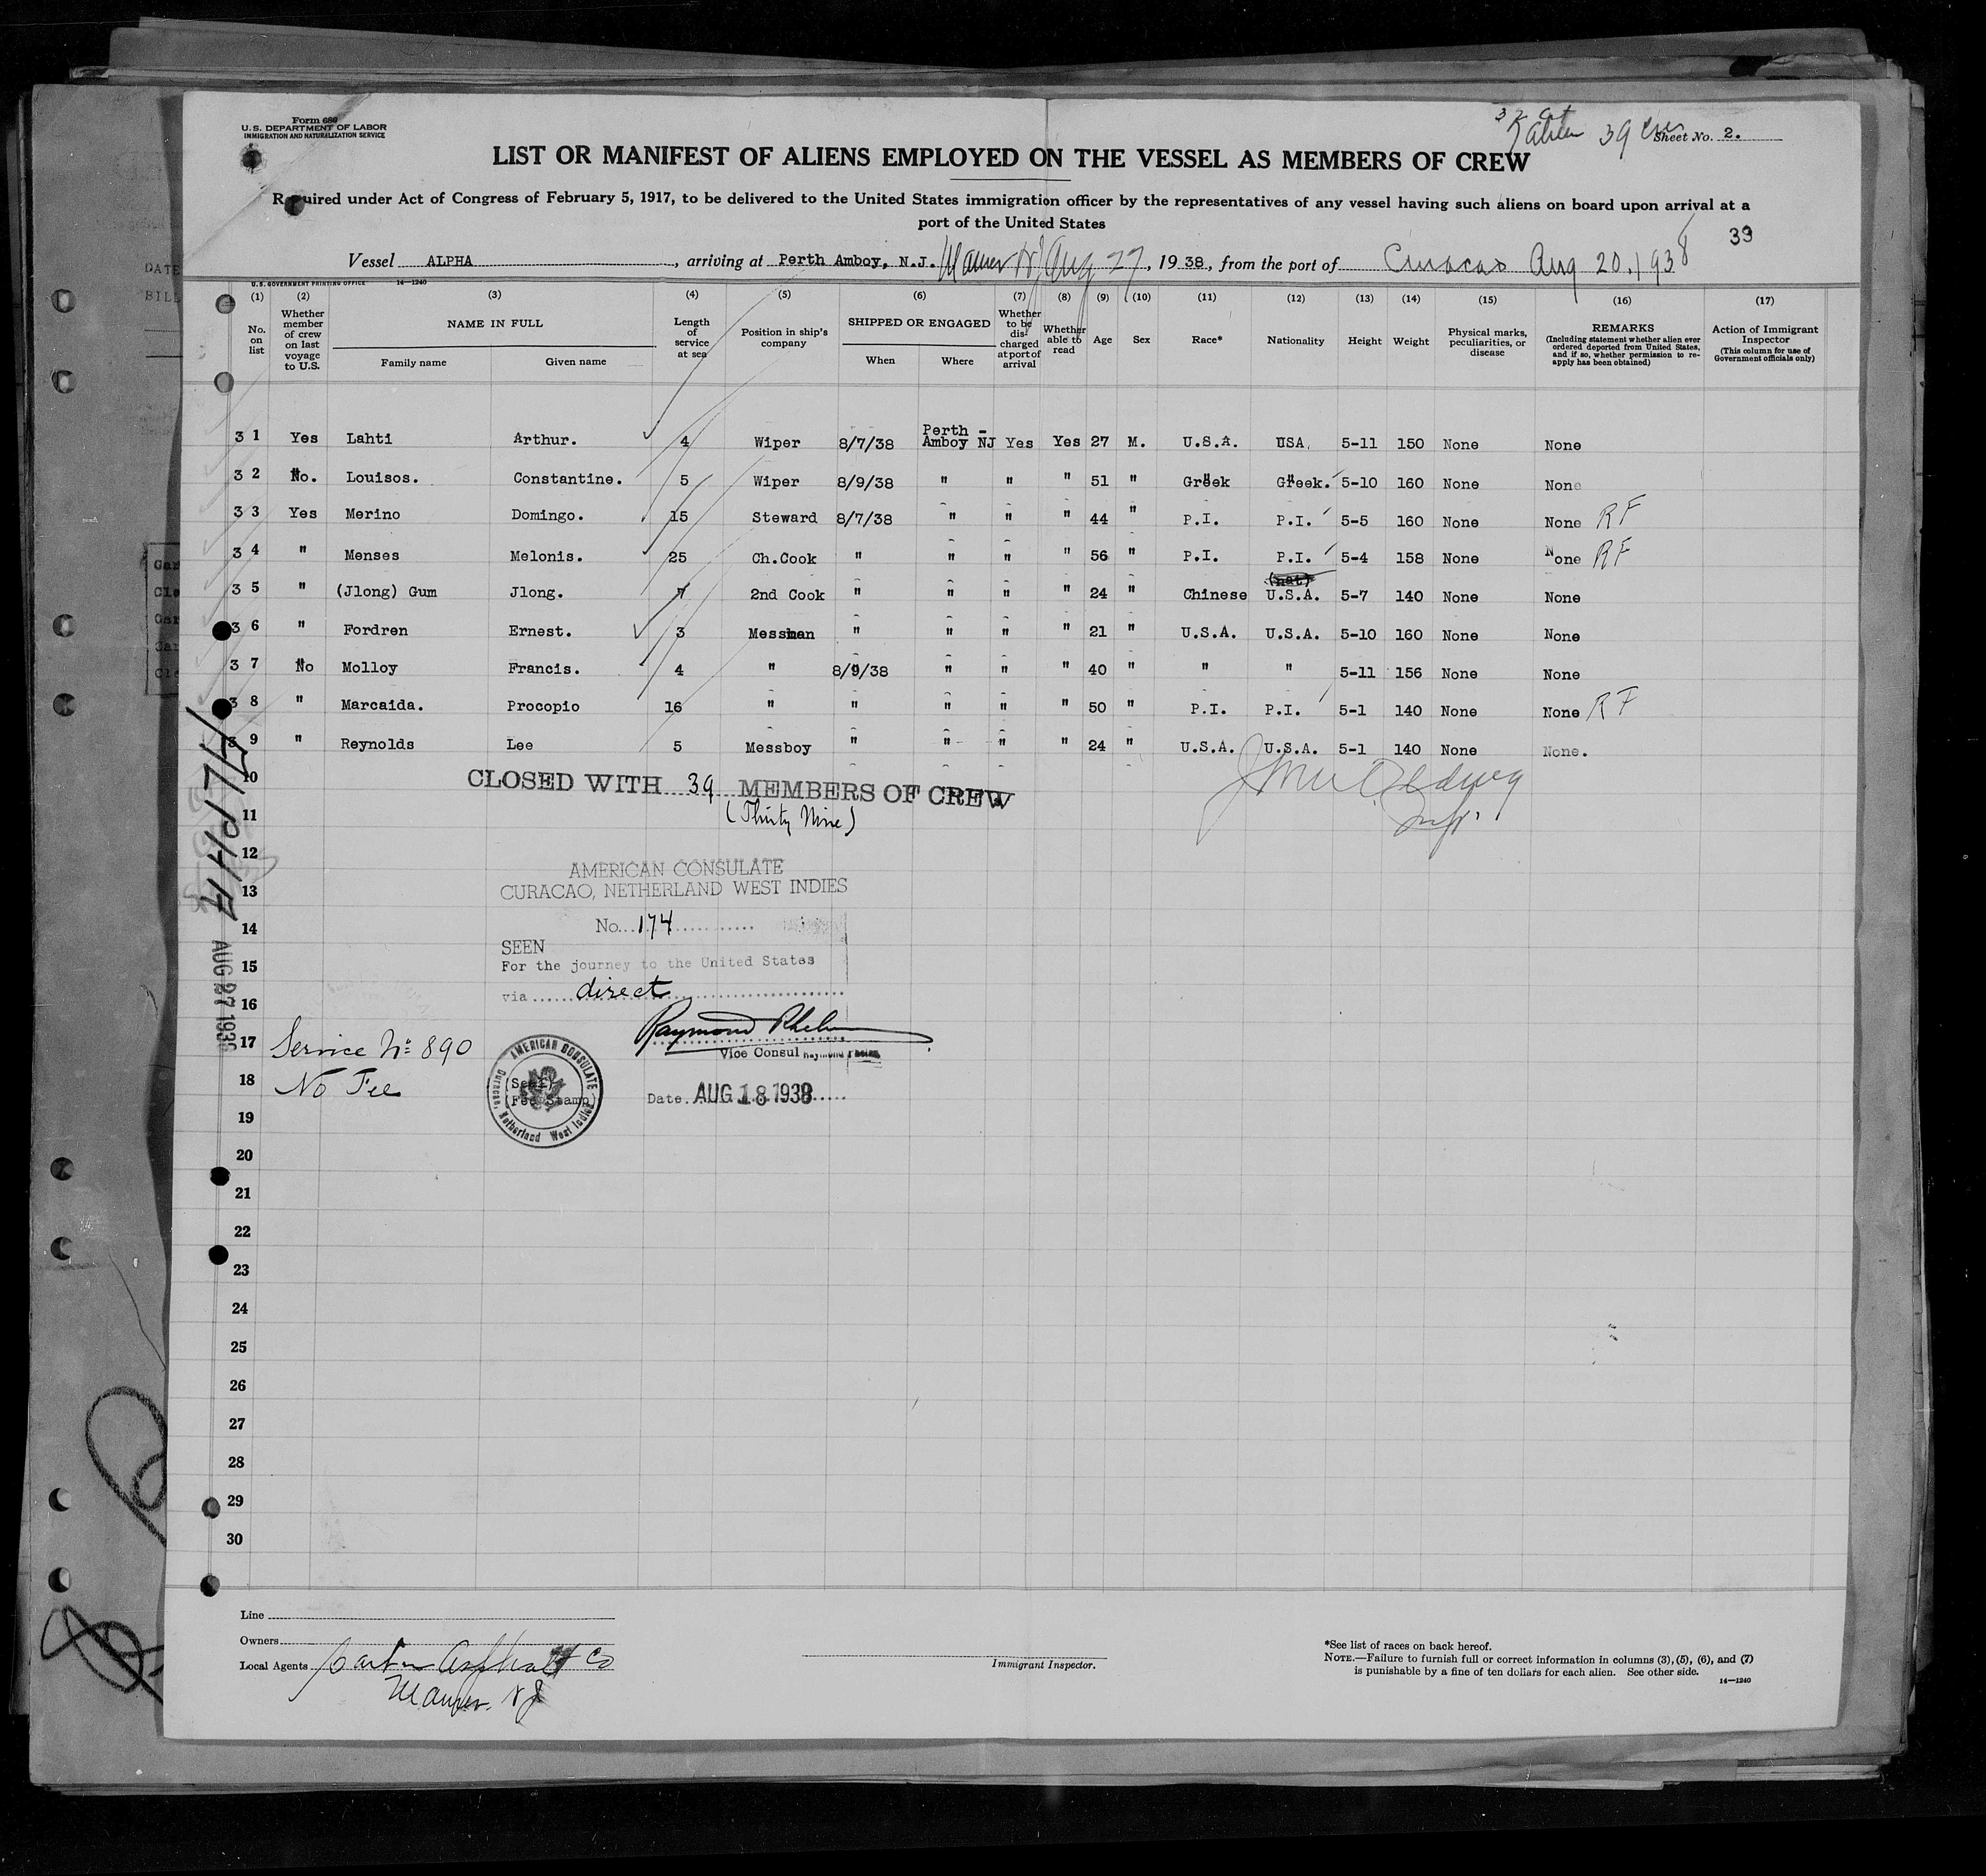 Form 680
U.S. DEPARTMENT OF LABOR
IMMIGRATION AND NATURALIZATION SERVICE
39
Sheet No. 2.
LIST OR MANIFEST OF ALIENS EMPLOYED ON THE VESSEL AS MEMBERS OF CREW
Required under Act of Congress of February 5, 1917, to be delivered to the United States immigration officer by the representatives of any vessel having such aliens on board upon arrival at a
port of the United States
39
Vessel ALPHA, arriving at Perth Amboy, N.J. Maurer NJ Aug 27, 1938, from the port of Curacao Aug 20, 1938
U.S. GOVERNMENT PRINTING OFFICE 14—1240
(1) (2) (3) (4) (5) (6) (7) (8) (9) (10) (11) (12) (13) (14) (15) (16) (17)
No. on list
Whether member of crew on last voyage to U.S.
NAME IN FULL
Family name Given name
Length of service at sea
Position in ship's company
SHIPPED OR ENGAGED
When Where
Whether to be discharged at port of arrival
Whether able to read
Age
Sex
Race*
Nationality
Height
Weight
Physical marks, peculiarities, or disease
REMARKS
(Including statement whether alien ever ordered deported from United States, and if so, whether permission to reapply has been obtained)
Action of Immigrant Inspector
(This column for use of Government officials only)
31 Yes Lahti Arthur. 4 Wiper 8/7/38 Perth - Amboy NJ Yes Yes 27 M. U.S.A. USA. 5-11 150 None None
32 No. Louisos. Constantine. 5 Wiper 8/9/38 " " " 51 " Greek Greek. 5-10 160 None None
33 Yes Merino Domingo. 15 Steward 8/7/38 " " " 44 " P.I. P.I. 5-5 160 None None RF
34 " Menses Melonis. 25 Ch.Cook " " " " 56 " P.I. P.I. 5-4 158 None None RF
35 " (Jlong) Gum Jlong. 7 2nd Cook " " " " 24 " Chinese (nat) U.S.A. 5-7 140 None None
36 " Fordren Ernest. 3 Messman " " " " 21 " U.S.A. U.S.A. 5-10 160 None None
37 No Molloy Francis. 4 " 8/9/38 " " " 40 " " " 5-11 156 None None
38 " Marcaida. Procopio 16 " " " " " 50 " P.I. P.I. 5-1 140 None None RF
39 " Reynolds Lee 5 Messboy " " " " 24 " U.S.A. U.S.A. 5-1 140 None None.
10
CLOSED WITH 39 MEMBERS OF CREW
(Thirty Nine)
11
12
AMERICAN CONSULATE
CURACAO, NETHERLAND WEST INDIES
13
No. 174
14
SEEN
For the journey to the United States
15
via direct
16
Raymond Phelan
17
Vice Consul Raymond Phelan
Service No 890
18
No Fee
AMERICAN CONSULATE
Curacao, Netherland West Indies
(Seal)
(Fee Stamp)
Date. AUG 18 1938
19
20
21
22
23
24
25
26
27
28
29
30
AUG 27 1938
Line
Owners
Local Agents
Asphalt Co
Maurer. NJ
Immigrant Inspector.
*See list of races on back hereof.
NOTE.—Failure to furnish full or correct information in columns (3), (5), (6), and (7)
is punishable by a fine of ten dollars for each alien. See other side.
14—1240